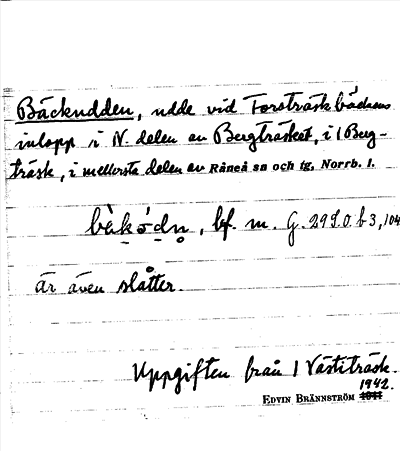 Bäckudden, udde vid Forsträskbäckens
inlopp i N. delen av Bergträsket, i 1 Berg-
träsk, i mellersta delen av Råneå sn och tg, Norrb. l.
bèkódn, bf. m. G. 29 S.O. b 3, 104
är även slåtter.
Uppgiften från 1 Västiträsk.
1942.
EDVIN BRÄNNSTRÖM 1941